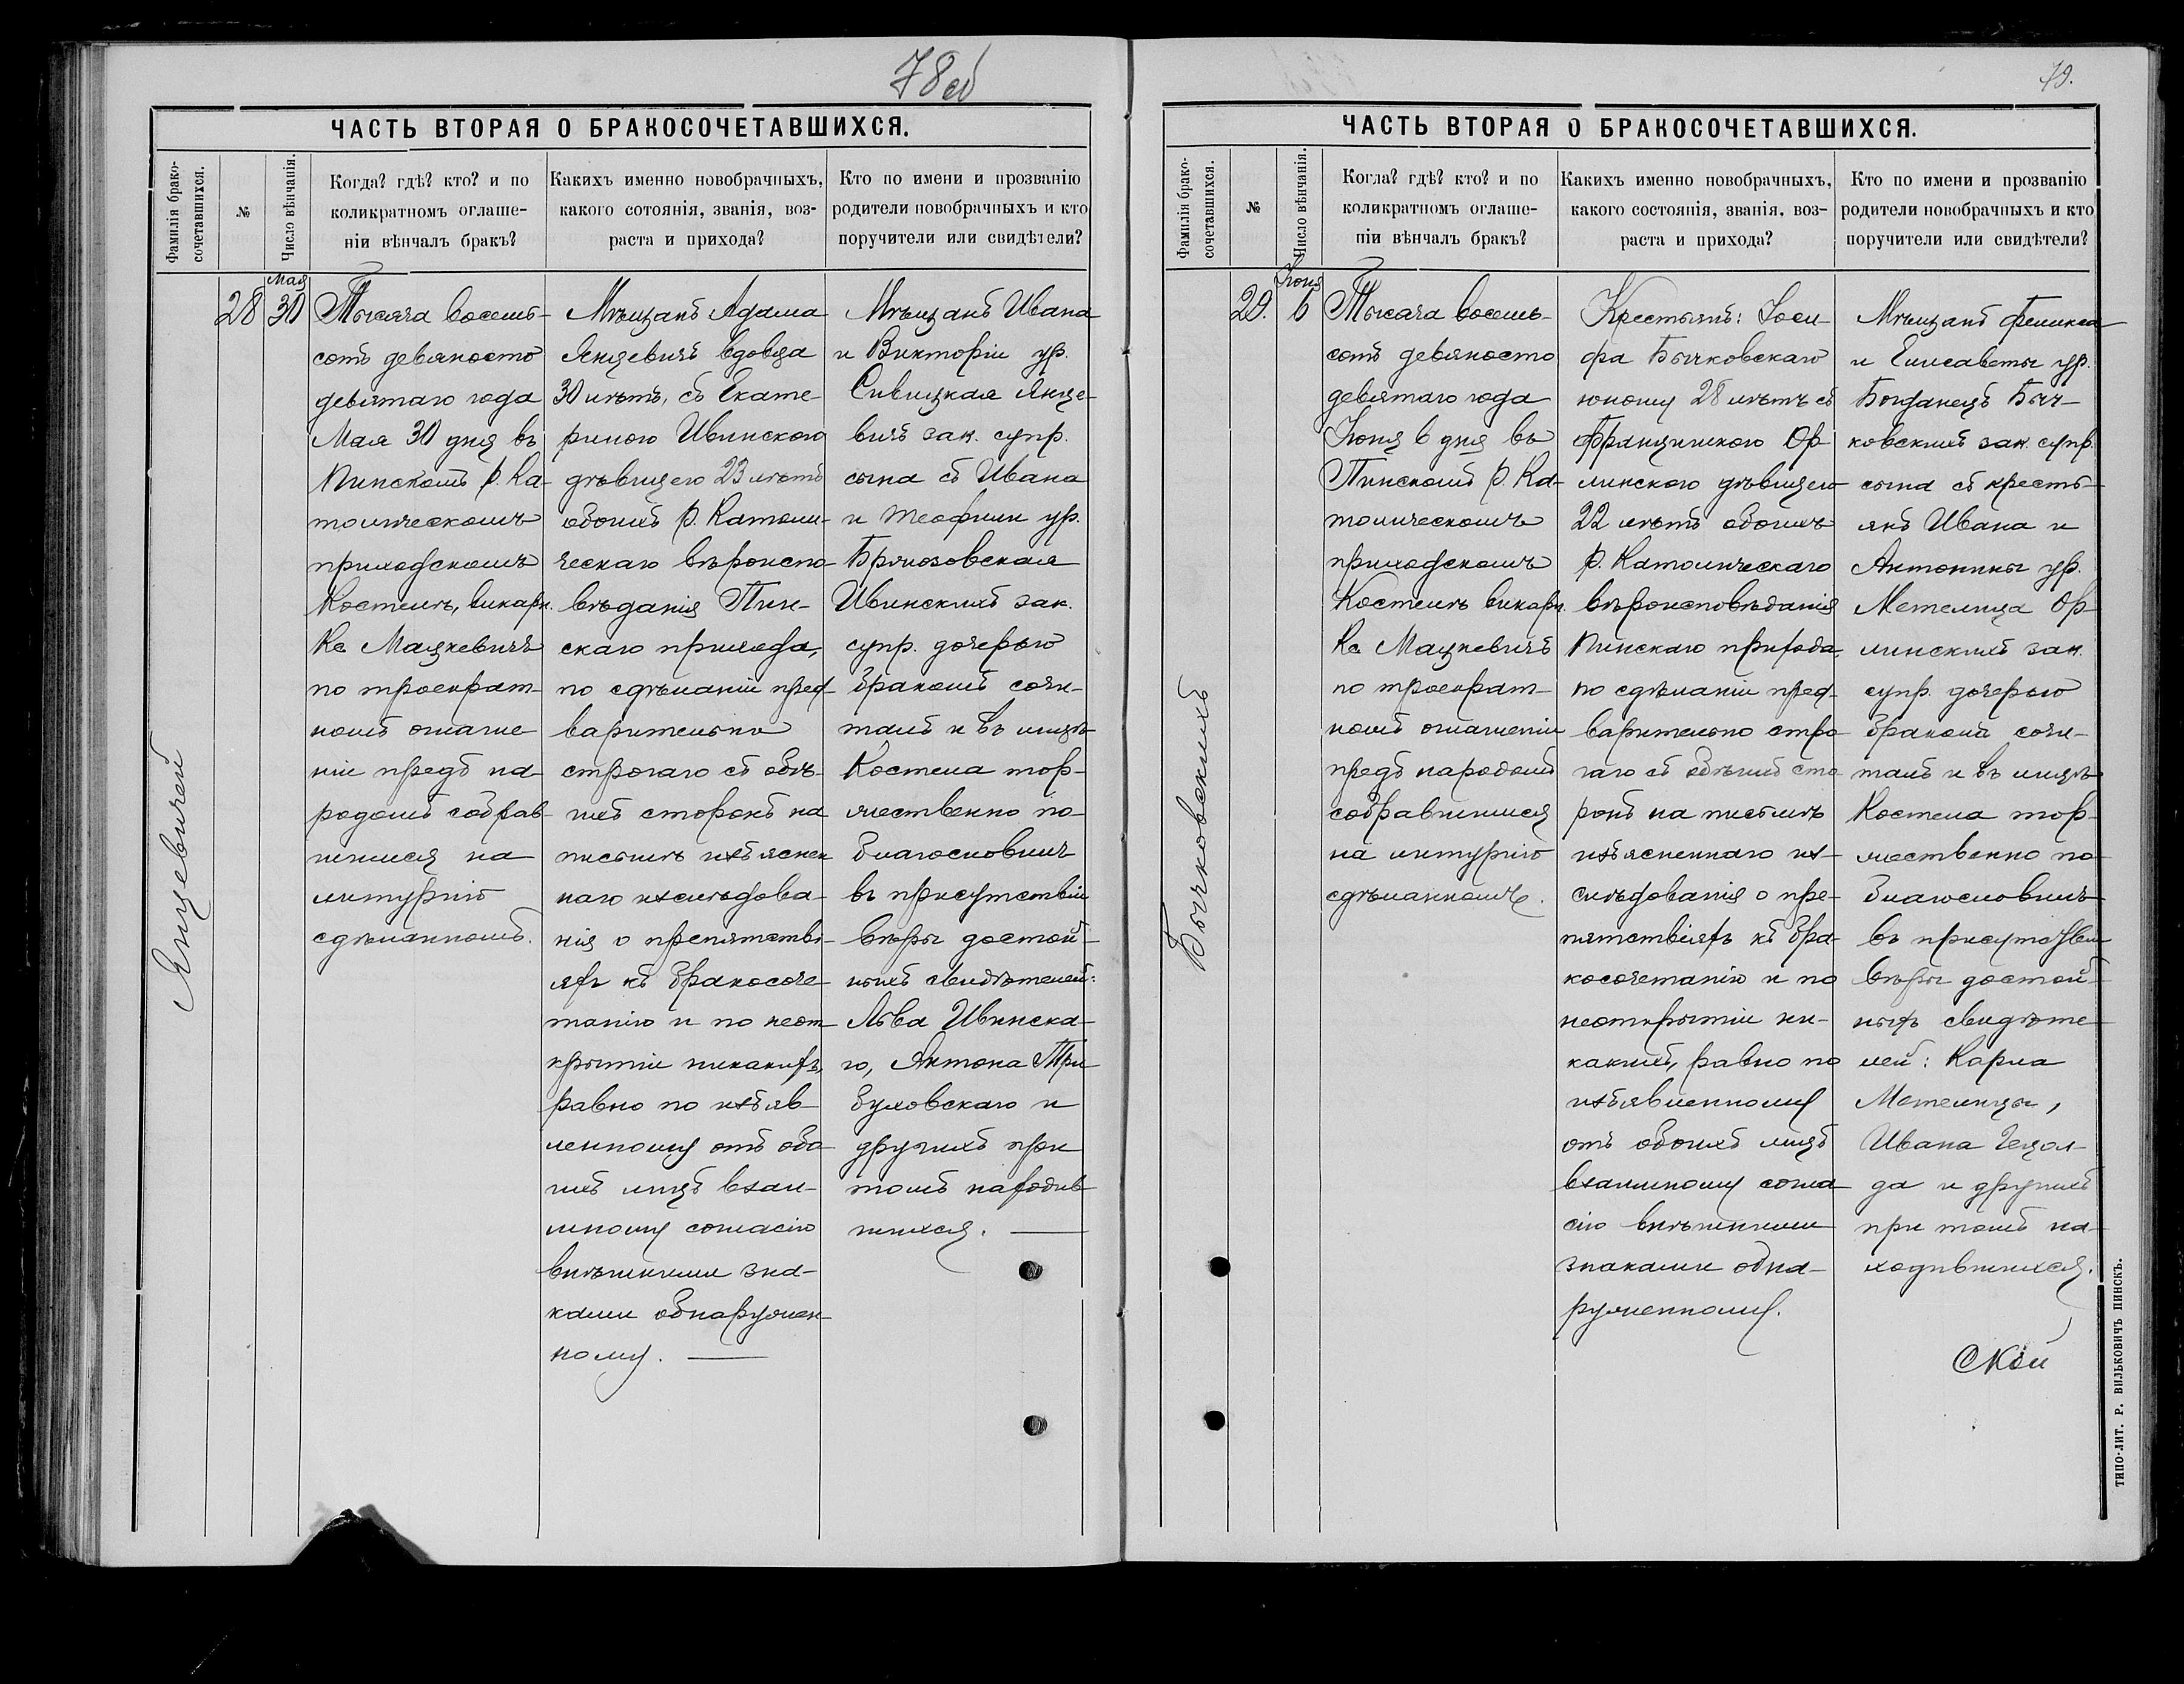 78 об
ЧАСТЬ ВТОРАЯ О БРАКОСОЧЕТАВШИХСЯ.
Фамилія брако-
сочетавшихся.
№
Число вѣнчанія.
Когда? гдѣ? кто? и по
коликратномъ оглаше-
ніи вѣнчалъ бракъ?
Какихъ именно новобрачныхъ,
какого сотоянія, званія, воз-
раста и прихода?
Кто по имени и прозванію
родители новобрачныхъ и кто
поручители или свидѣтели?
Янцевичей
28
Мая
30
Тысяча восемь-
сотъ девяносто
девятаго года
Мая 30 дня въ
Пинскомъ р. Ка-
толическомъ
приходскомъ
Костелѣ, викарн.
Кс Мацкевичъ
по троекрат-
номъ оглаше-
ніи предъ на-
родомъ собрав-
шимся на
литургію
сдѣланномъ.
Мѣщанъ Адама
Янцевичъ вдовца
30 лѣтъ, съ Екате-
риною Ивинскою
дѣвицею 23 лѣтъ
обоихъ р. Католи-
ческаго вѣроиспо-
вѣданія Пин-
скаго прихода,
по сдѣланіи пред-
варительно
строгаго съ обѣ-
ихъ сторонъ на
письмѣ изъяснен
наго изслѣдова-
нія о препятстві-
яхъ къ бракосоче-
танію и по неот-
крытіи никакихъ,
равно по изъяв-
ленному отъ обо-
ихъ лицъ взаи-
мному согласію
внѣшними зна-
ками обнаружен-
ному.
Мѣщанъ Ивана
и Викторіи ур.
Сивицкая Янце-
вичъ зак. супр.
сына съ Ивана
и Теофили ур.
Бржозовская
Ивинскихъ зак.
супр. дочерью
бракомъ соче-
талъ и въ лицѣ
Костела тор-
жественно по-
благословилъ
въ присутствіи
вѣры достой-
ныхъ свидѣтелей:
Льва Ивинска-
го, Антона Три-
буховскаго и
другихъ при
томъ находив-
шихся.
79.
ЧАСТЬ ВТОРАЯ О БРАКОСОЧЕТАВШИХСЯ.
Фамилія брако-
сочетавшихся.
№
Число вѣнчанія.
Когда? гдѣ? кто? и по
коликратномъ оглаше-
ніи вѣнчалъ бракъ?
Какихъ именно новобрачныхъ,
какого состоянія, званія, воз-
раста и прихода?
Кто по имени и прозванію
родители новобрачныхъ и кто
поручители или свидѣтели?
Бычковскихъ
29.
Іюня
6
Тысяча восемь-
сотъ девяносто
девятаго года
Іюня 6 дня въ
Пинскомъ р. Ка-
толическомъ
приходскомъ
Костелѣ викарн.
Кс Мацкевичъ
по троекрат-
номъ оглашеніи
предъ народомъ
собравшимся
на литургію
сдѣланномъ.
Крестьянъ: Іоси-
фа Бычковскаго
юношу 28 лѣтъ съ
Францишкою Ор-
линскою дѣвицею
22 лѣтъ обоихъ
р. Католическаго
вѣроисповѣданія
Пинскаго прихода,
по сдѣланіи пред-
варительно стро-
гаго съ обѣихъ сто
ронъ на письмѣ
изъясненнаго из-
слѣдованія о пре-
пятствіяхъ къ бра-
косочетанію и по
неоткрытіи ни-
какихъ, равно по
изъявленному
отъ обоихъ лицъ
взаимному согла
сію внѣшними
знаками обна-
руженному.
Мѣщанъ Феликса
и Елисаветы ур.
Богданецъ Быч-
ковскихъ зак. супр.
сына съ кресть-
янъ Ивана и
Антонины ур.
Метелица Ор-
линскихъ зак.
супр. дочерью
бракомъ соче-
талъ и въ лицѣ
Костела тор-
жественно по-
благословилъ
въ присутствіи
вѣры достой-
ныхъ свидѣте-
лей: Карла
Метелицы,
Ивана Чецол-
да и другихъ
при томъ на-
ходившихся.
ТИПО-ЛИТ. Р. ВИЛЬКОВИЧЪ ПИНСКЪ.